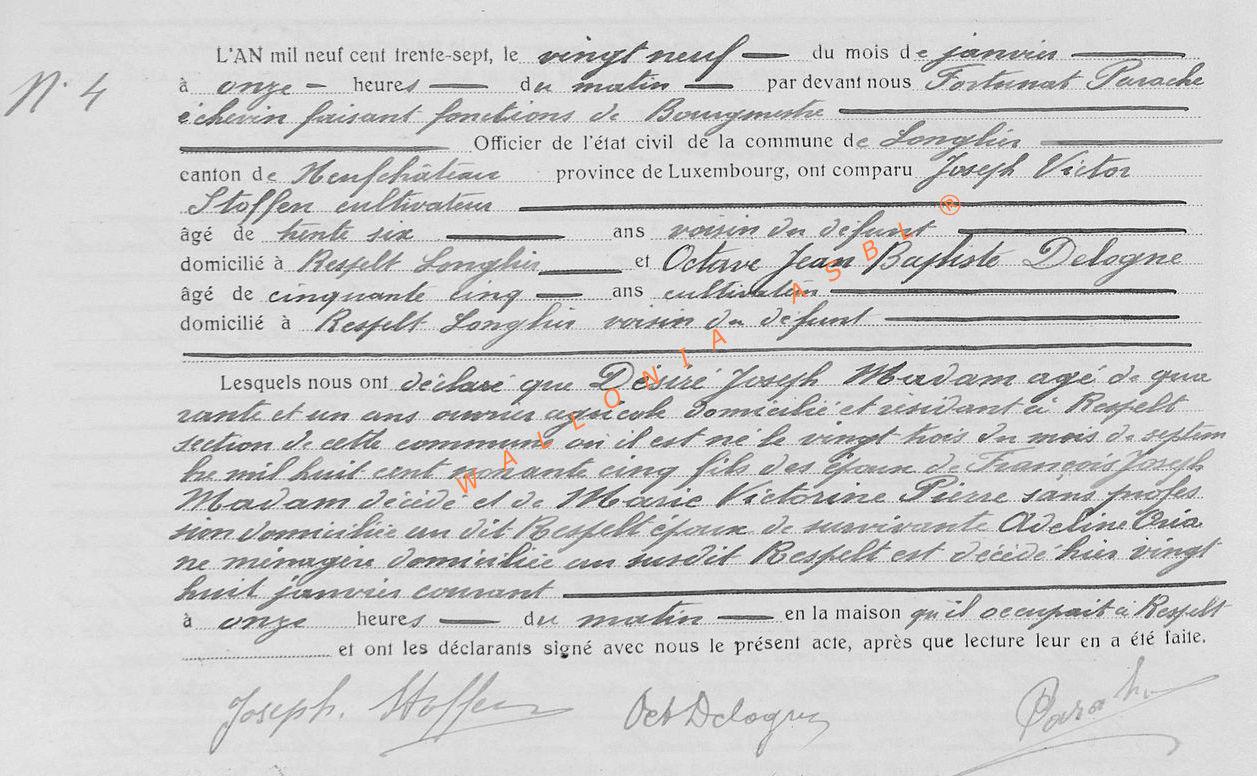 L'AN mil neuf cent trente-sept, le vingt neuf du mois de janvier
N° 4
à onze heures du matin par devant nous Fortunat Parache
échevin faisant fonctions de Bourgmestre
Officier de l'état civil de la commune de Longlier
canton de Neufchâteau province de Luxembourg, ont comparu Joseph Victor
Stoffen cultivateur
âgé de trente six ans voisin du défunt
domicilié à Respelt Longlier et Octave Jean Baptiste Delogne
âgé de cinquante cinq ans cultivateur
domicilié à Respelt Longlier voisin du défunt
Lesquels nous ont déclaré que Désiré Joseph Madam agé de qua
rante et un ans ouvrier agricole domicilié et résidant à Respelt
section de cette commune où il est né le vingt trois du mois de septem
bre mil huit cent nonante cinq fils des époux de François Joseph
Madam décédé et de Marie Victorine Pierre sans profes
sion domiciliée au dit Respelt époux de survivante Adeline Oria
ne ménagère domiciliée au susdit Respelt est décédé hier vingt
huit janvier courant
à onze heures du matin en la maison qu'il occupait à Respelt
et ont les déclarants signé avec nous le présent acte, après que lecture leur en a été faite.
Joseph. Stoffen Oct Delogne Parache
WALLONIA ASBL ®